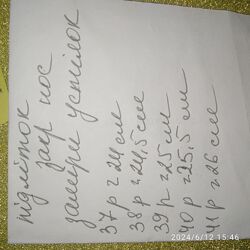 підліток
закр нос
заміри устілок
37р = 24 см
38р = 24,5 см
39р = 25 см
40р = 25,5 см
41р = 26 см
2024/6/12 15:46